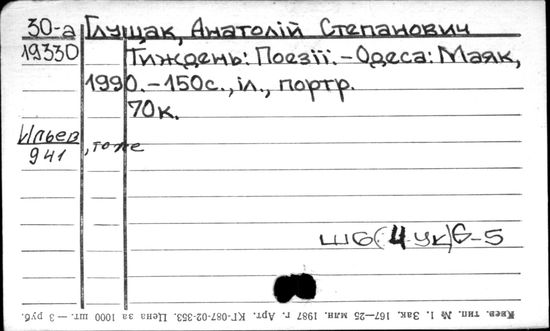 30-а Глущак, Анатолій Степанович
19330 Тиждень: Поезії. – Одеса: Маяк,
1990. – 150с., іл., портр.
70к.
Ильев
941 , тоже
Ш6(4УК)6-5
Киев. тип. № 1. Зак. 167—25. млн. 1987 г. Арт. КГ-087-02-353. Цена за 1000 шт. — 3 руб.